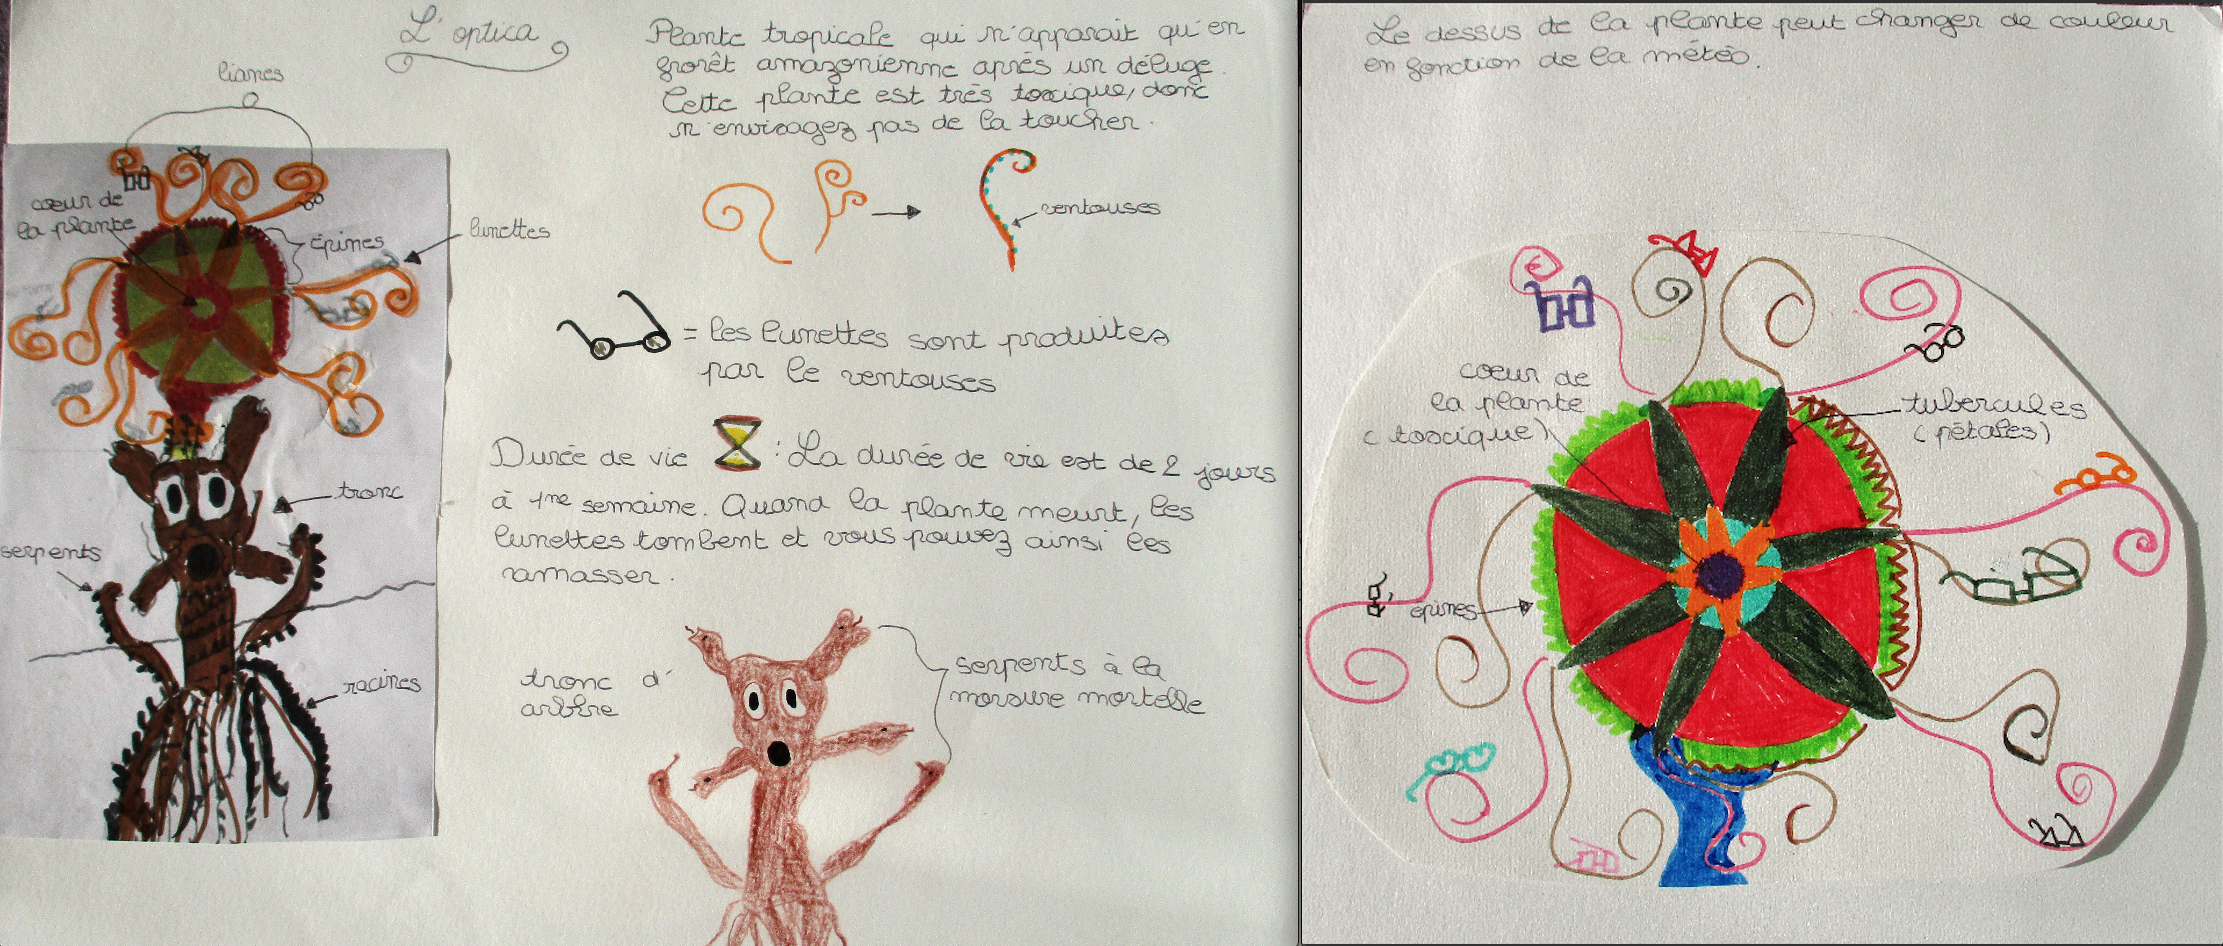 L'optica
Plante tropicale qui n'apparait qu'en
forêt amazonienne après un déluge.
Cette plante est très toxique, donc
n'envisagez pas de la toucher.
lianes
cœur de
la plante
épines
lunettes
ventouses
= les lunettes sont produites
par le ventouses
Durée de vie : La durée de vie est de 2 jours
à 1ne semaine. Quand la plante meurt, les
lunettes tombent et vous pouvez ainsi les
ramasser.
tronc
serpents
racines
tronc d'
arbre
serpents à la
morsure mortelle
Le dessus de la plante peut changer de couleur
en fonction de la météo.
cœur de
la plante
(toxique)
tubercules
(pétales)
épines